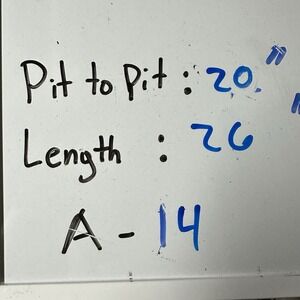 Pit to Pit : 20."
Length : 26"
A - 14